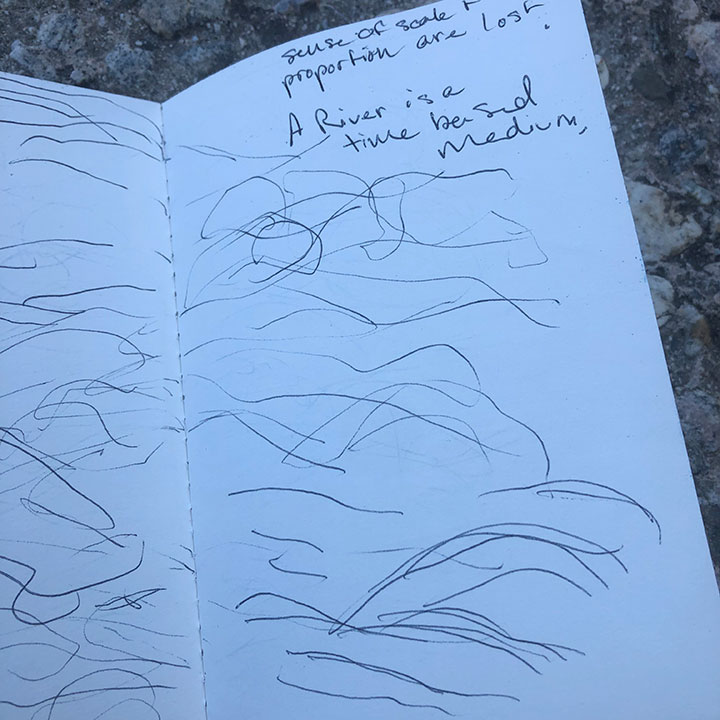 sense of scale +
proportion are lost.
A River is a
time based
medium.